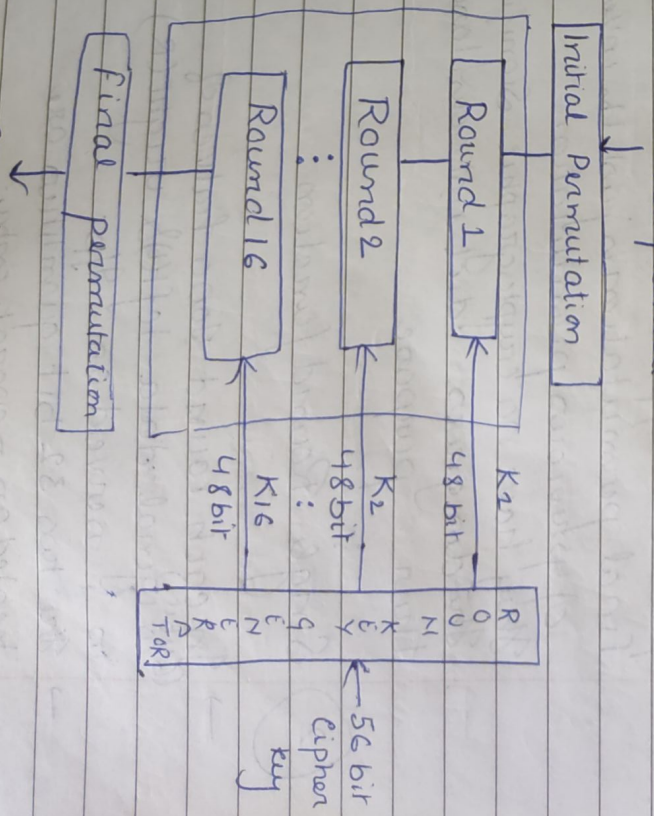 Initial Permutation
Round 1
K1
48 bit
Round 2
K2
48 bit
:
:
Round 16
K16
48 bit
Final permutation
ROUN KEY GENERATOR
56 bit
Cipher
key